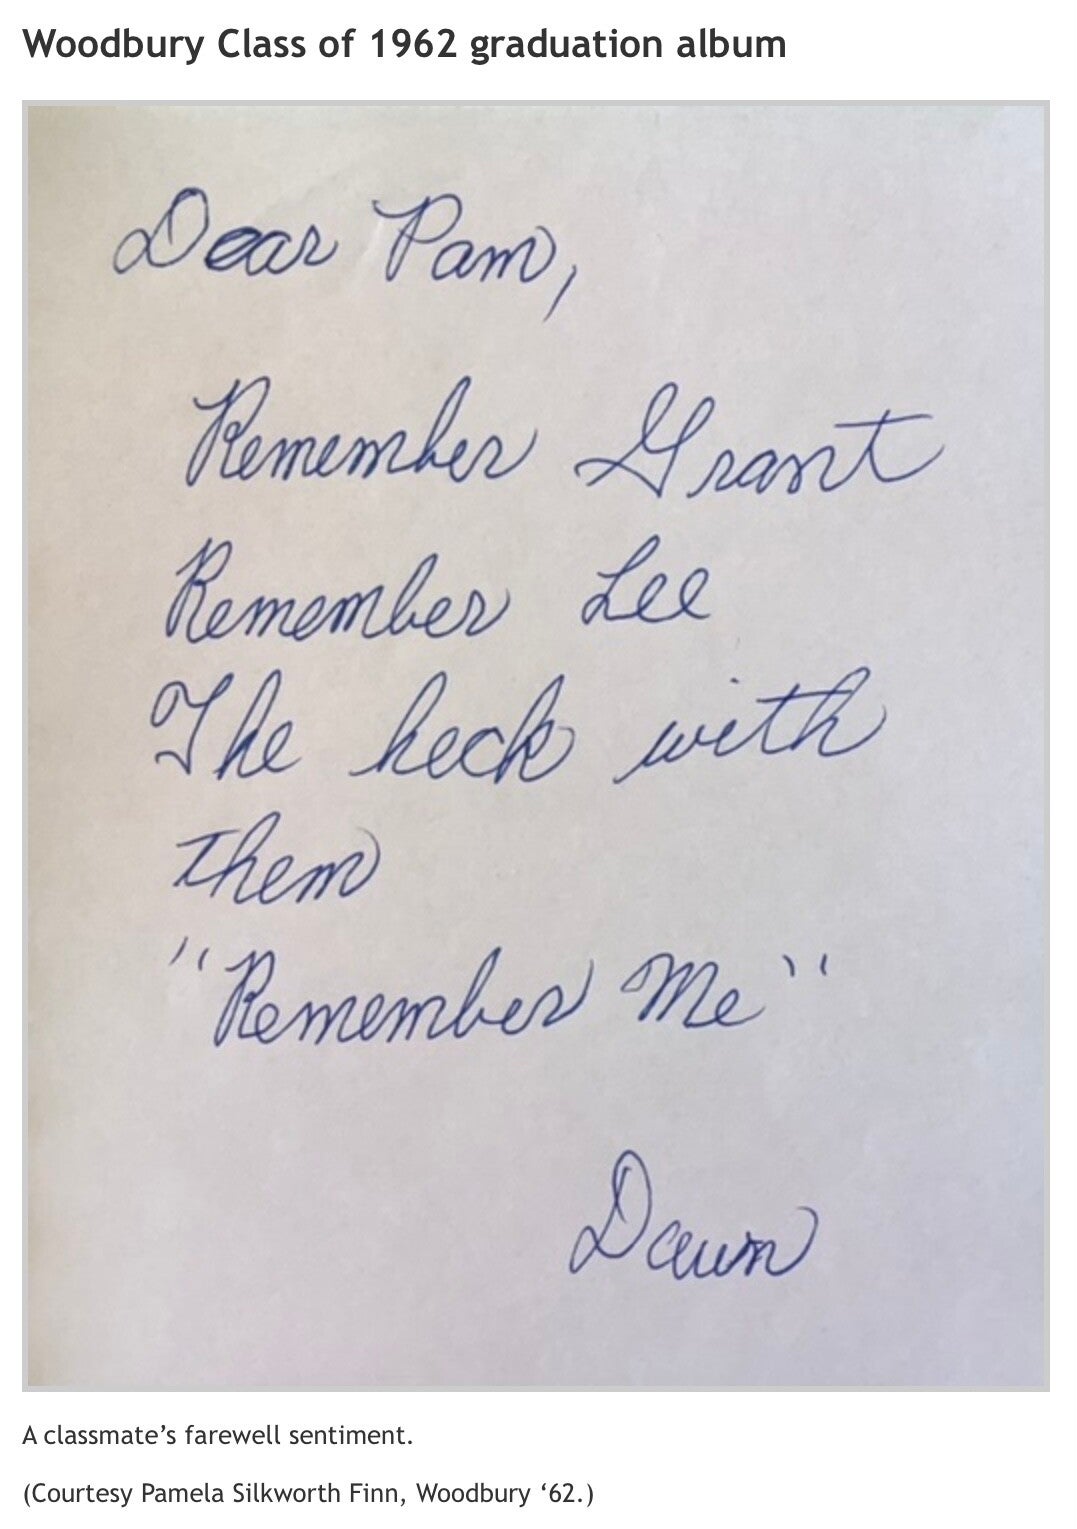 Woodbury Class of 1962 graduation album
Dear Pam,
Remember Grant
Remember Lee
The heck with
them
"Remember Me"
Dawn
A classmate’s farewell sentiment.
(Courtesy Pamela Silkworth Finn, Woodbury ‘62.)